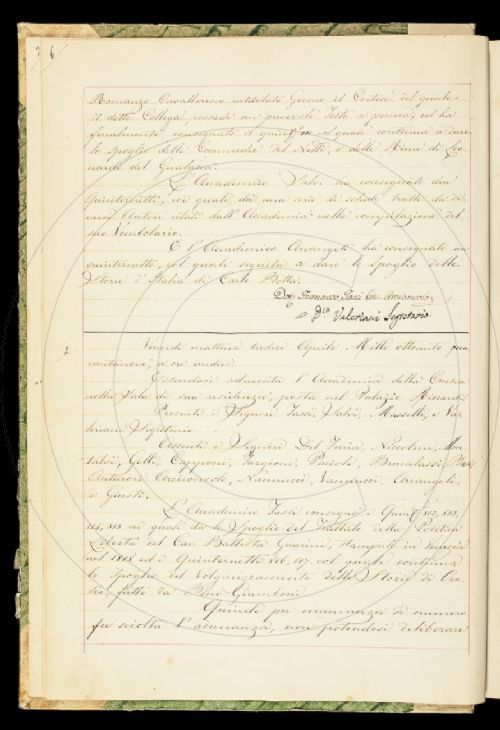 6.
Romanzo Cavalleresco, intitolato Girone il Cortese del quale
il detto Collega, possiede un pregevole Testo a penna; ed ha
finalmente consegnato il quint.° col quale continua a dare
lo spoglio delle Commedie del Notti, e delle Rime di Leo-
nardo del Guallacca.
L'Accademico Salvi ha consegnati due
Quinternetti, coi quali dà una serie di schede tratte da di-
versi Autori citati dall'Accademia nella compilazione del
suo Vocabolario.
E l'Accademico Arcangeli ha consegnato un
quinternetto, col quale seguita a dare lo spoglio delle
Storie d'Italia di Carlo Botta.
Dog. Francesco Tassi
Valeriani Segretario
Venerdì mattina tredici Aprile Mille ottocento qua
rantanove, a ore undici
Essendosi adunata l'Accademia della Crusca
nella Sala di sua residenza, posta nel Palazzo Riccardi
Presenti i Signori Tassi, Salvi, Masselli, e Va-
leriani Segretario.
Assenti i Signori Del Furia, Niccolini, Mon-
talvi, Gelli, Capponi, Targioni, Puccioli, Buonarroti,
Antinori, Nannucci, Vannucci, Arcangeli,
e Giusti.
L'Accademico Tassi consegna i Quint. 812, 813,
814, 818 in quali dà lo Spoglio del Trattato della Politica
Libertà del Cav. Battista Guarini, stampato in Venezia
nel 1818 ed i Quinternetti 816, 817 col quale continua
lo spoglio del Volgarizzamento delle Storie di Oro-
sio, fatto da Bono Giamboni
Quindi per mancanza di numero
fu sciolta l'adunanza, non potendosi deliberare